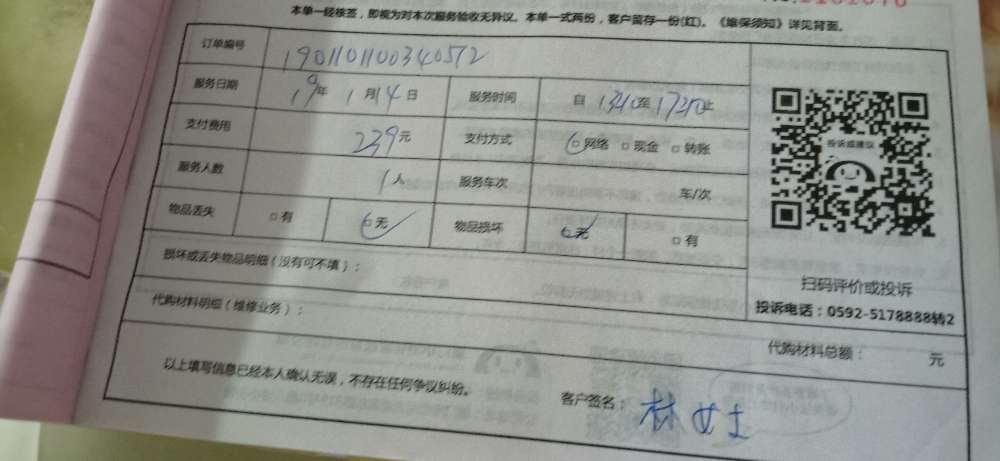 本单一经核签，即视为对本次服务验收无异议。本单一式两份，客户留存一份(红)。《维保须知》详见背面。
订单编号 190110110034057 2
服务日期 19年 1月14日 服务时间 自 1340至1720止
支付费用 239元 支付方式 □网络 □现金 □转账
服务人数 1人 服务车次 车/次
物品丢失 □有 □无 物品损坏 □无 □有
损坏或丢失物品明细（没有可不填）：
代购材料明细（维修业务）：
投诉或建议
扫码评价或投诉
投诉电话：0592-5178888转2
代购材料总额： 元
以上填写信息已经本人确认无误，不存在任何争议纠纷。
客户签名：林女士